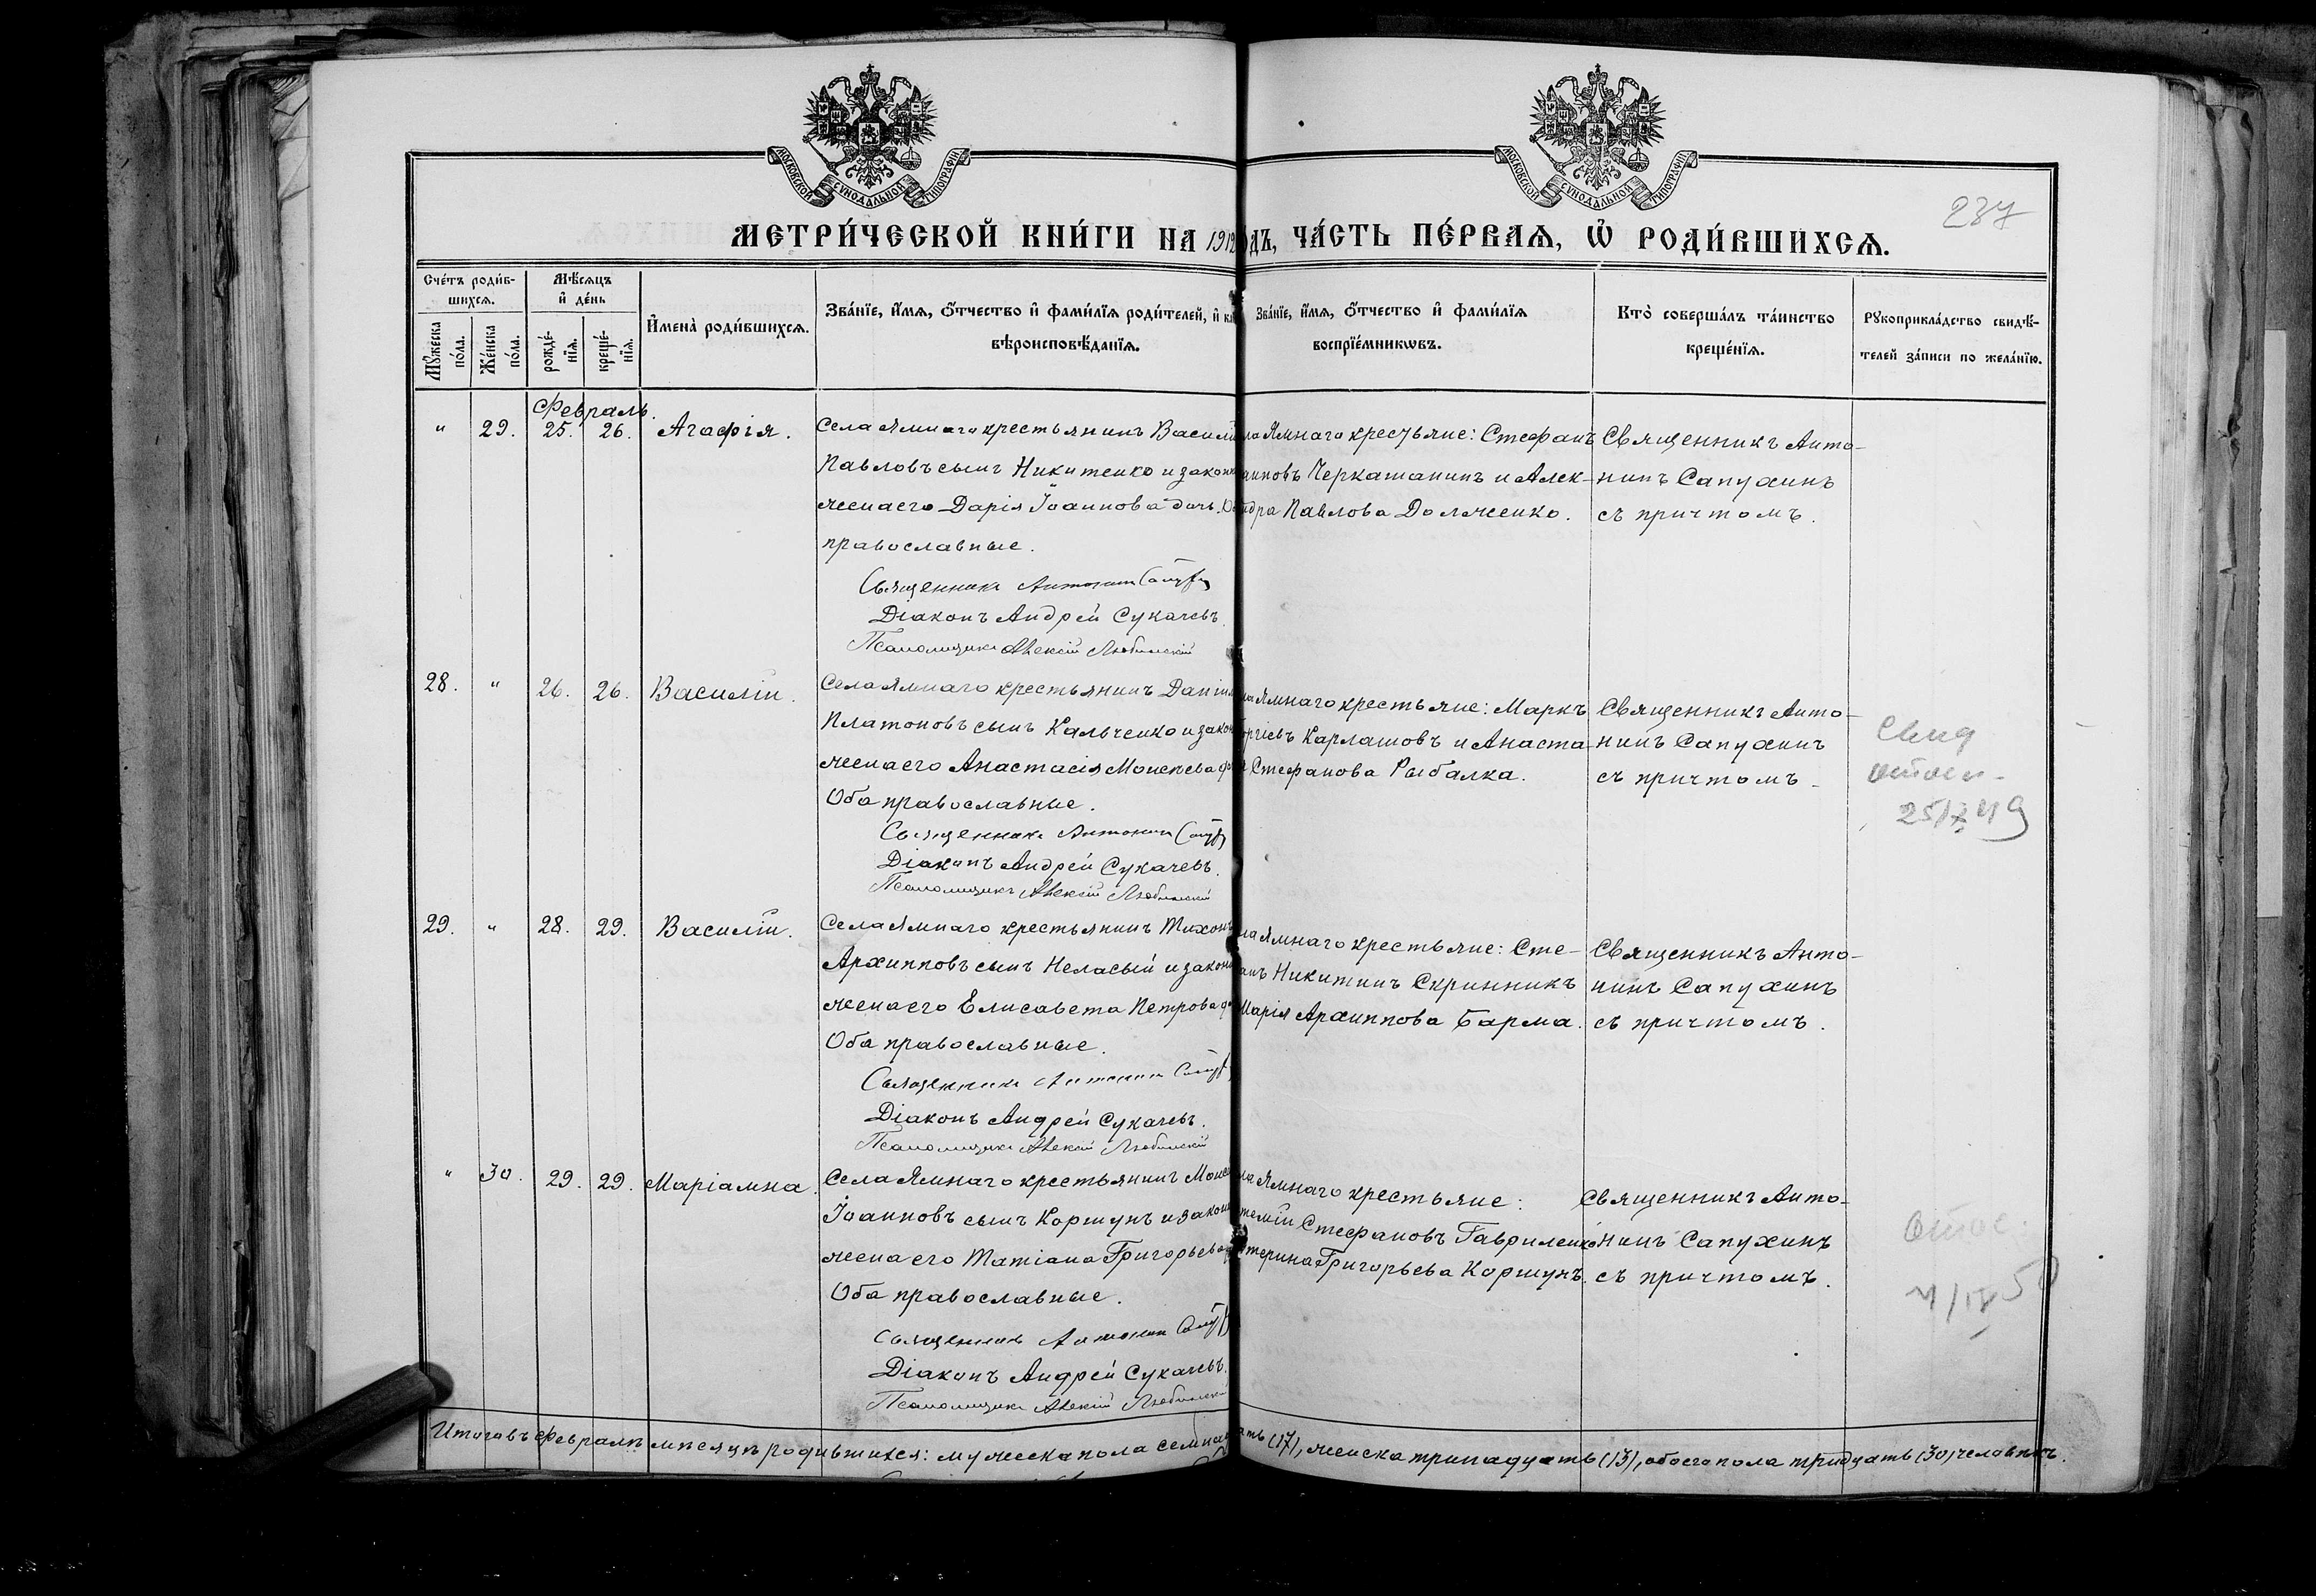 МОСКОВСКОЙ СѴНОДАЛЬНОЙ ТИПОГРАФІИ
МОСКОВСКОЙ СѴНОДАЛЬНОЙ ТИПОГРАФІИ
237
МЕТРИ́ЧЕСКОЙ КНИ́ГИ НА 1912 ДЪ, ЧА́СТЬ ПЕ́РВАѦ, Ѡ҆ РОДИ́ВШИХСѦ.
Сче́тъ роди́в-
шихсѧ.
Мꙋ́жеска по́ла.
Же́нска по́ла.
Мѣ́сѧцъ
и҆ де́нь
рожде́-
нїѧ.
креще́-
нїѧ.
И҆мена̀ роди́вшихсѧ.
Зва́нїе, и҆́мѧ, ѻ҆́тчество и҆ фами́лїѧ роди́телей, и҆ ка
вѣроисповѣ́данїѧ.
Зва́нїе, и҆́мѧ, ѻ҆́тчество и҆ фами́лїѧ
воспрїе́мникѡвъ.
Кто̀ соверша́лъ та́инство
креще́нїѧ.
Рꙋкоприкла́дство свидѣ́-
телей за́писи по жела́нїю.
Февраль.
" 29. 25. 26. Агафія.
Села Ямнаго крестьянинъ Васил
Павловъ сынъ Никитенко и закон
жена его Дарія Іоаннова дочь. Об
православные.
Священникъ Антонин Сапух
Діаконъ Андрей Сукачевъ.
Псаломщикъ Алексій Любимскій
ла Ямнаго крестьяне: Стефанъ
анновъ Черкашанинъ и Алек-
ндра Павлова Долженко.
Священникъ Анто-
нинъ Сапухинъ
съ причтомъ.
28. " 26. 26. Василій.
Села Ямнаго крестьянинъ Даніил
Платоновъ сынъ Кальченко и закон
жена его Анастасія Моисеева до
Оба православные.
Священникъ Антонин Сапух
Діаконъ Андрей Сукачевъ.
Псаломщикъ Алексій Любимскій
ла Ямнаго крестьяне: Маркъ
оргіевъ Карлашовъ и Анаста-
я Стефанова Рыбалка.
Священникъ Анто-
нинъ Сапухинъ
съ причтомъ.
Свид
25/X 49
29. " 28. 29. Василій.
Села Ямнаго крестьянинъ Тихонъ
Архипповъ сынъ Неласый и закон
жена его Елисавета Петрова до
Оба православные.
Священникъ Антонин Сапух
Діаконъ Андрей Сукачевъ.
Псаломщикъ Алексій Любимскій
ла Ямнаго крестьяне: Сте-
анъ Никитинъ Скринникъ
Марія Архиппова Барма.
Священникъ Анто-
нинъ Сапухинъ
съ причтомъ.
" 30. 29. 29. Маріамна.
Села Ямнаго крестьянинъ Моисе
Іоанновъ сынъ Коршунъ и закон
жена его Татіана Григорьева до
Оба православные.
Священникъ Антонин Сапух
Діаконъ Андрей Сукачевъ.
Псаломщикъ Алексій Любимскій
ла Ямнаго крестьяне:
темій Стефановъ Гавриленко
терина Григорьева Коршунъ.
Священникъ Анто-
нинъ Сапухинъ
съ причтомъ.
Итого въ Февралѣ мѣсяцѣ родившихся: мужеска пола семнадцать (17), женска тринадцать (13), обоего пола тридцать (30) человѣкъ.